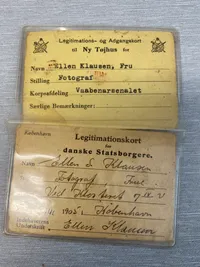 Legitimations- og Adgangskort
til Ny Tøjhus for
Navn Ellen Klausen, Fru
Stilling Fotograf
Korpsafdeling Vaabenarsenalet
Særlige Bemærkninger:
København
Legitimationskort
for
danske Statsborgere.
Navn Ellen S. Klausen
Fotograf Frue
Ved Klostret
1905. København
Underskrift Ellen Klausen